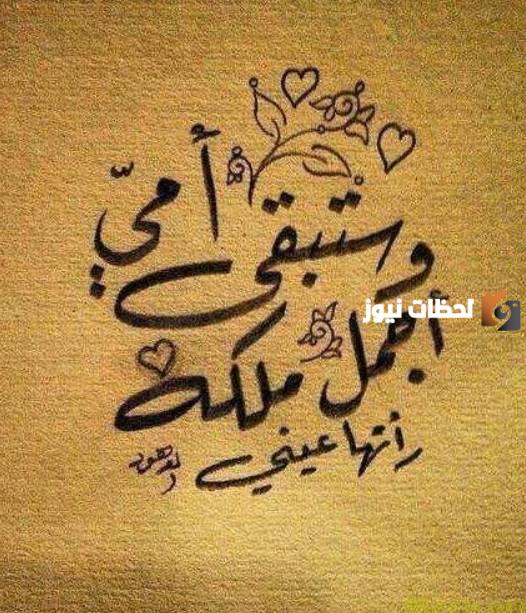 وستبقى أمّي
أجمل ملكة
رأتها عيني
لحظات نيوز